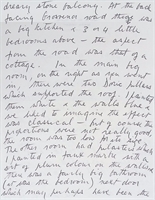 dreary stone balcony. At the back
facing Grosvenor road there was
a big kitchen & 3 or 4 little
bedrooms above - the aspect
from the road was that of a
cottage. In the main big
room, on the right as you went
in, there were two Doric pillars
which supported the roof, I painted
them white & the walls blue &
we liked to imagine the effect
was classical - but of course the
proportions were not really good,
the room was too low for its
The other room had plasters which
I painted in panels nearly with
art of plum colour on the ceiling
There was a fairly big bathroom
(it was the bedroom) next door
which may perhaps have been the